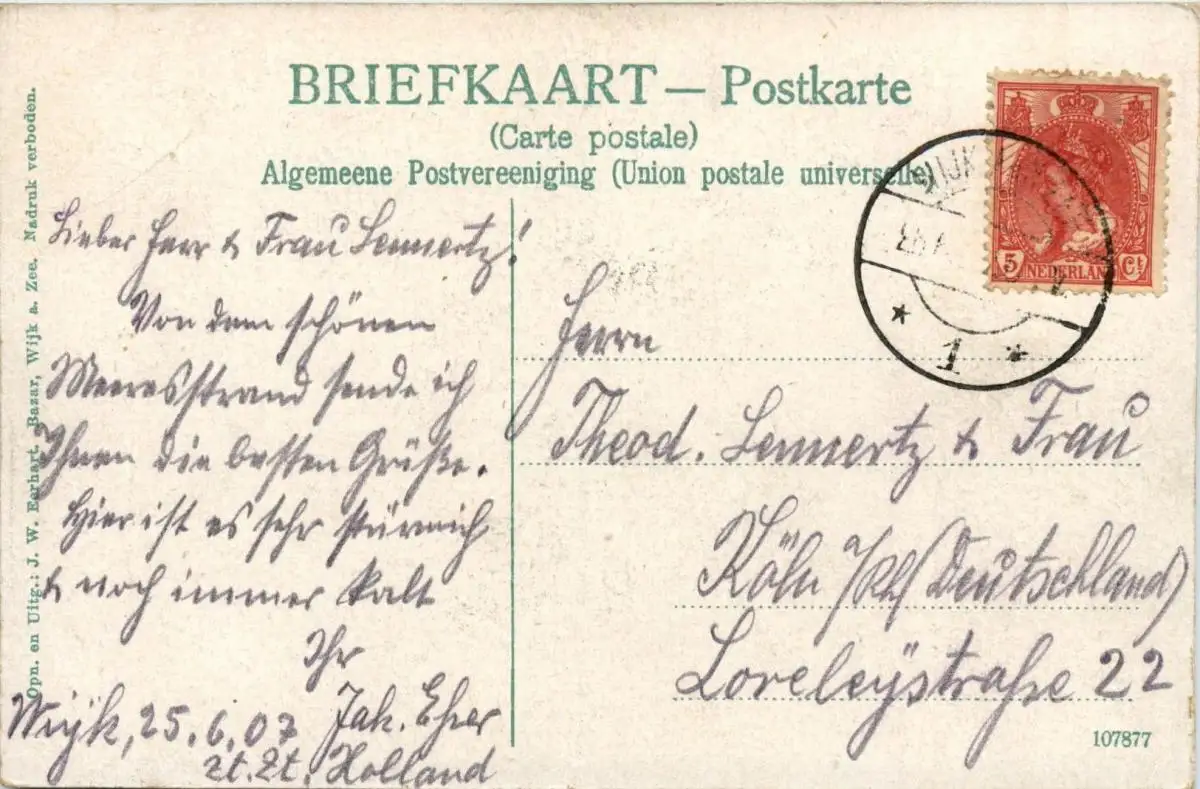 BRIEFKAART — Postkarte
(Carte postale)
Algemeene Postvereeniging (Union postale universelle)
Opn. en Uitg.: J. W. Eerhart, Bazar, Wijk a. Zee. Nadruk verboden.
Lieber Herr & Frau Lennertz!
Von dem schönen
Meeresstrand sende ich
Ihnen die besten Grüße.
Hier ist es sehr stürmisch
& noch immer kalt
Ihr
Jak. Eßer
Wijk, 25.6.07
zt. Zt. Holland
WIJK
1
5 NEDERLAND Ct
Herrn
Theod. Lennertz & Frau
Köln a/Rh (Deutschland)
Loreleystraße 22
107877